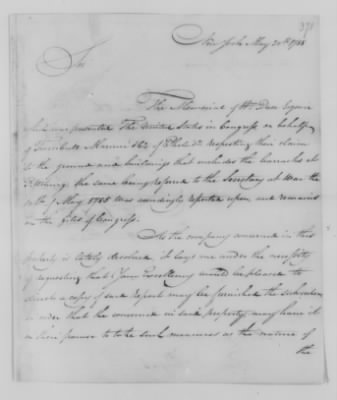 371
New York May 20th 1788
Sir
The Memorial of
which was presented The United States in Congress on behalf
of Turnbull Marmie &Co of respecting their claim
to the ground and buildings that includes the barracks at
the same being referred to the Secretary at War the
of May 1788 was accordingly reported upon and remains
in the files of Congress.
As the company concerned in this
property is lately dissolved, it lays me under the necessity
of requesting that Your Excellency would be pleased to
direct a copy of said report may be furnished the subscriber
in order that the concerned in said property may have it
in their power to take such measures as the nature of
the